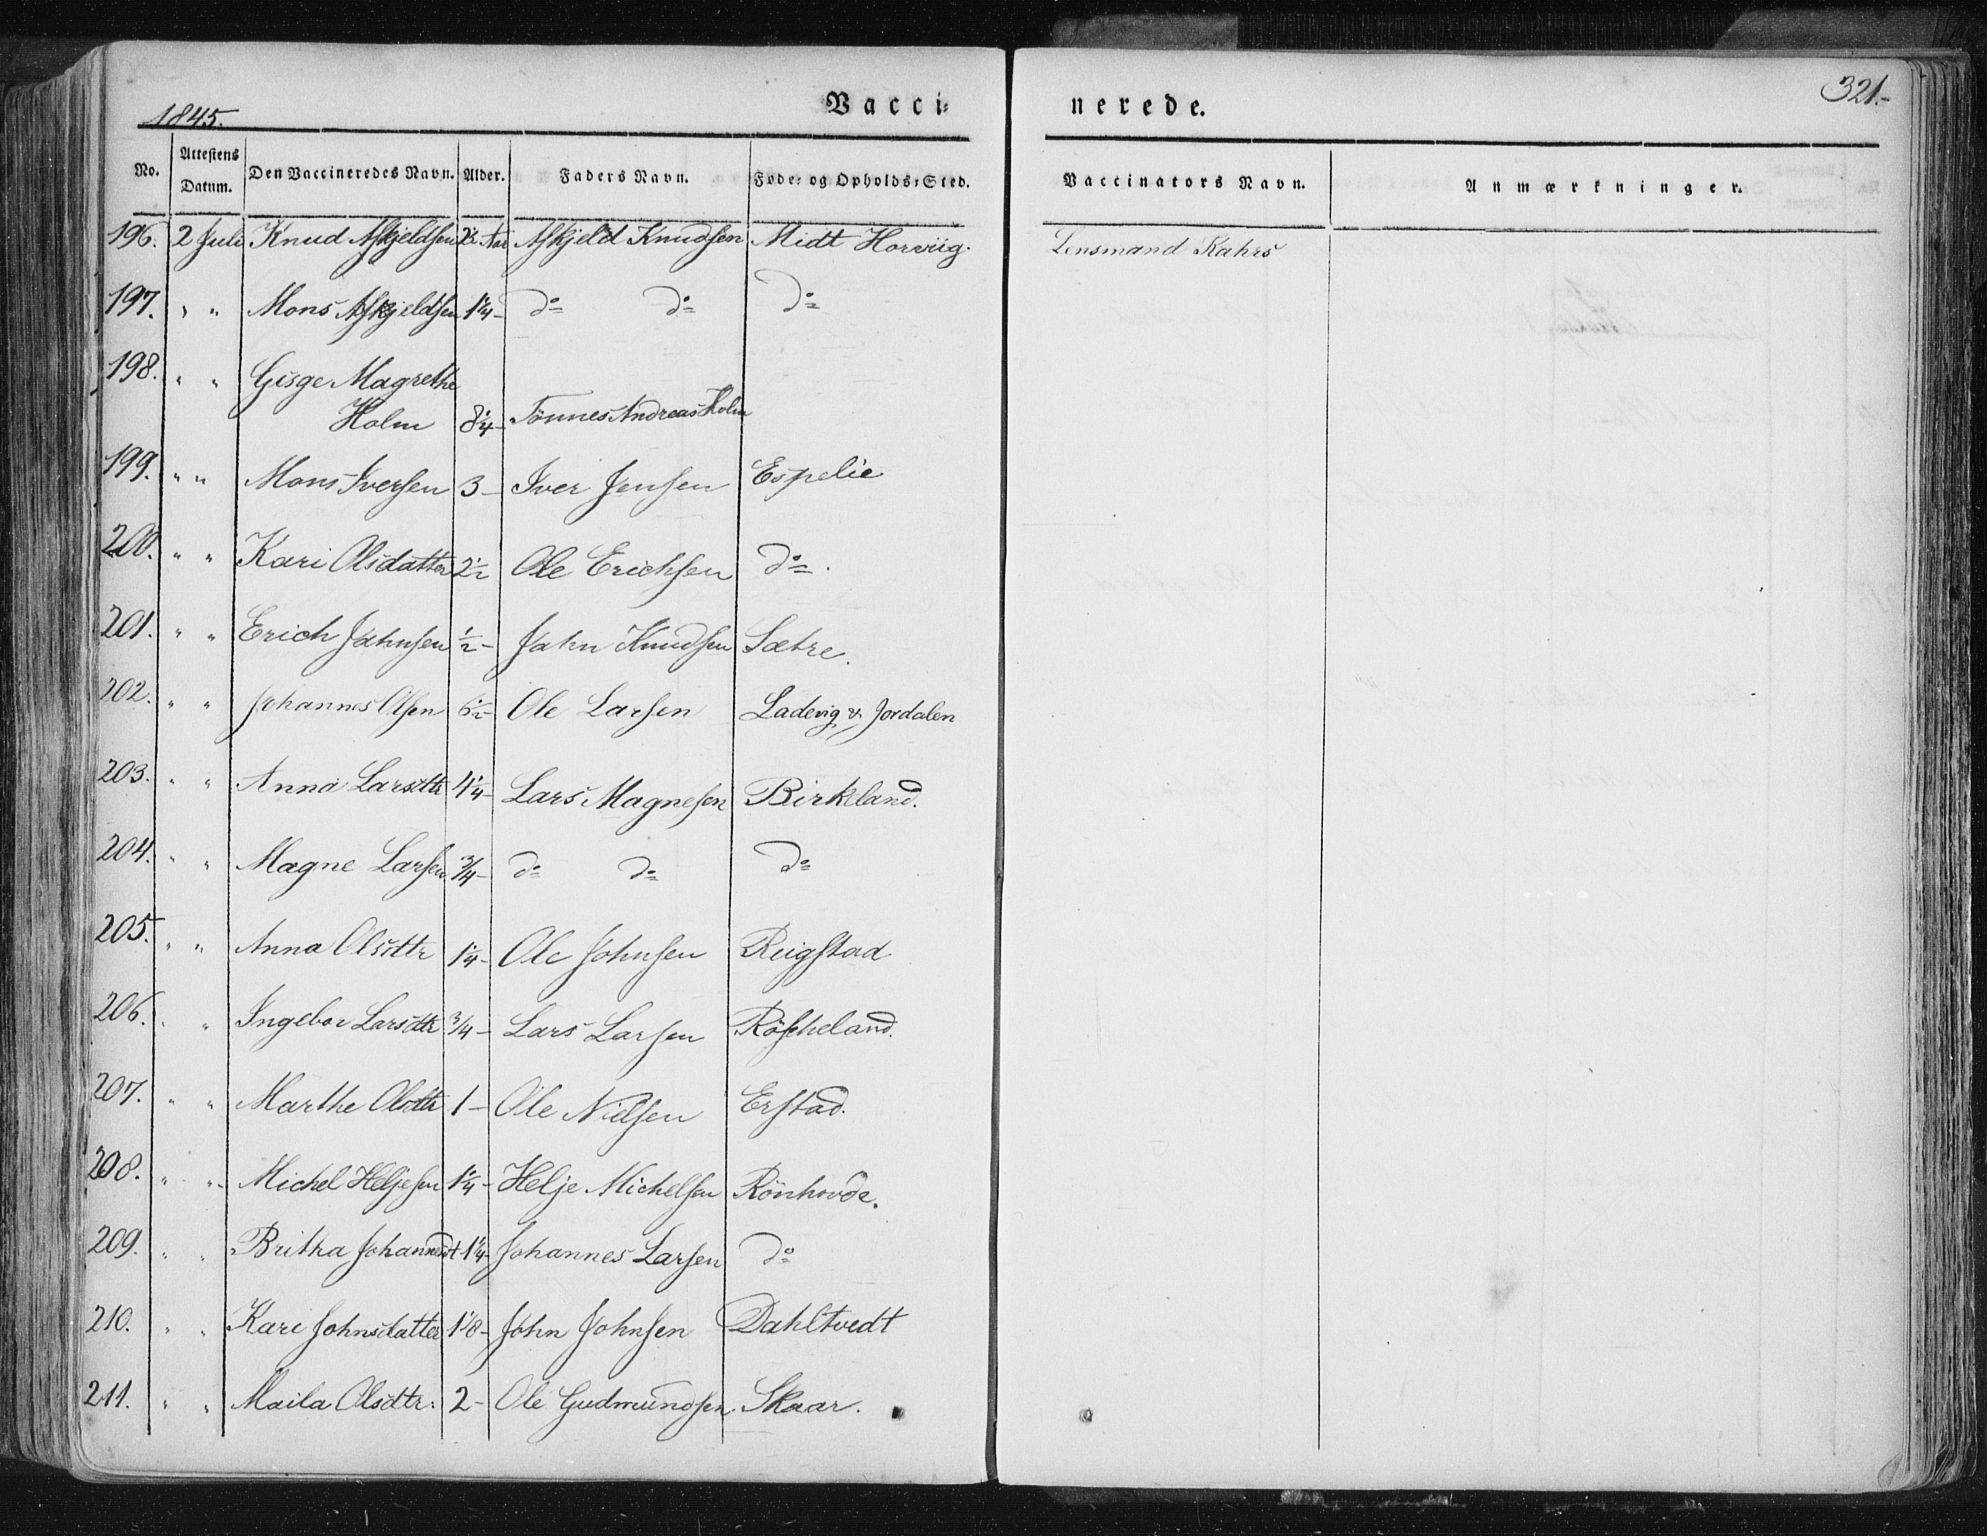 1845. Vacci- nerede. 321.-
No. Attestens Datum. Den Vaccineredes Navn. Alder. Faders Navn. Føde- og Opholds-Sted. Vaccinators Navn. Anmærkninger.
196. 2 Juli Knud Askjeldsen 2½ Aar Askjeld Knudsen Midt Horviig. Lensmand Kahrs
197. " " Mons Askjeldsen 1¼- do do do
198. " " Gisge Magrethe
Holm 8¼- Tönnes Andreas Holm
199. " " Mons Iversen 3- Iver Jensen Espelie
200. " " Kari Olsdatter 2½ Ole Erichsen do.
201. " " Erich Jahnsen ½- Jahn Knudsen Sætre.
202. " " Johannes Olsen 6½- Ole Larsen Ladevig & Jordalen
203. " " Anna Larsdtr 4¼- Lars Magnesen Birkeland.
204. " " Magne Larsen ¾- do do do
205. " " Anna Olsdtr 1¼- Ole Johnsen Reigstad
206. " " Ingebor Larsdtr ¾- Lars Larsen Röscheland.
207. " " Marthe Olsdtr 1- Ole Nielsen Erstad.
208. " " Michel Heljesen 1¼- Helje Michelsen Rönhovde.
209. " " Britha Johannesdt 1¼- Johannes Larsen do
210. " " Kari Johnsdatter 1⅛- John Johnsen Dahltvedt
211. " " Maila Olsdtr. 2- Ole Gudmundsen Skaar.